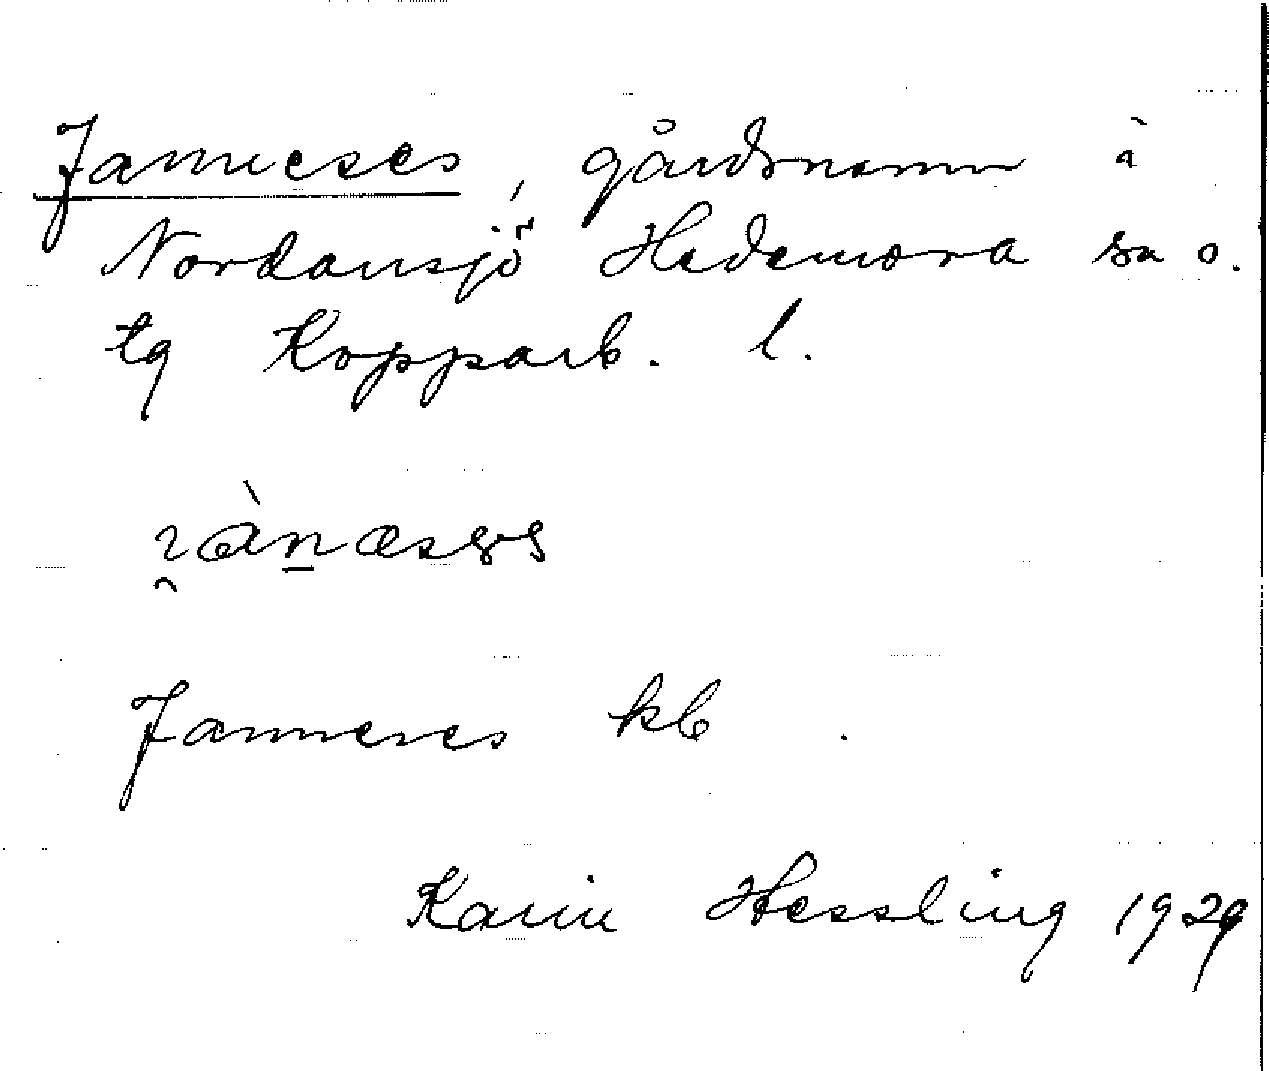 Janneses, gårdsnamn i
Nordansjö Hedemora sn o.
tg Kopparb. l.
Janneses kb
Karin Hessling 1929